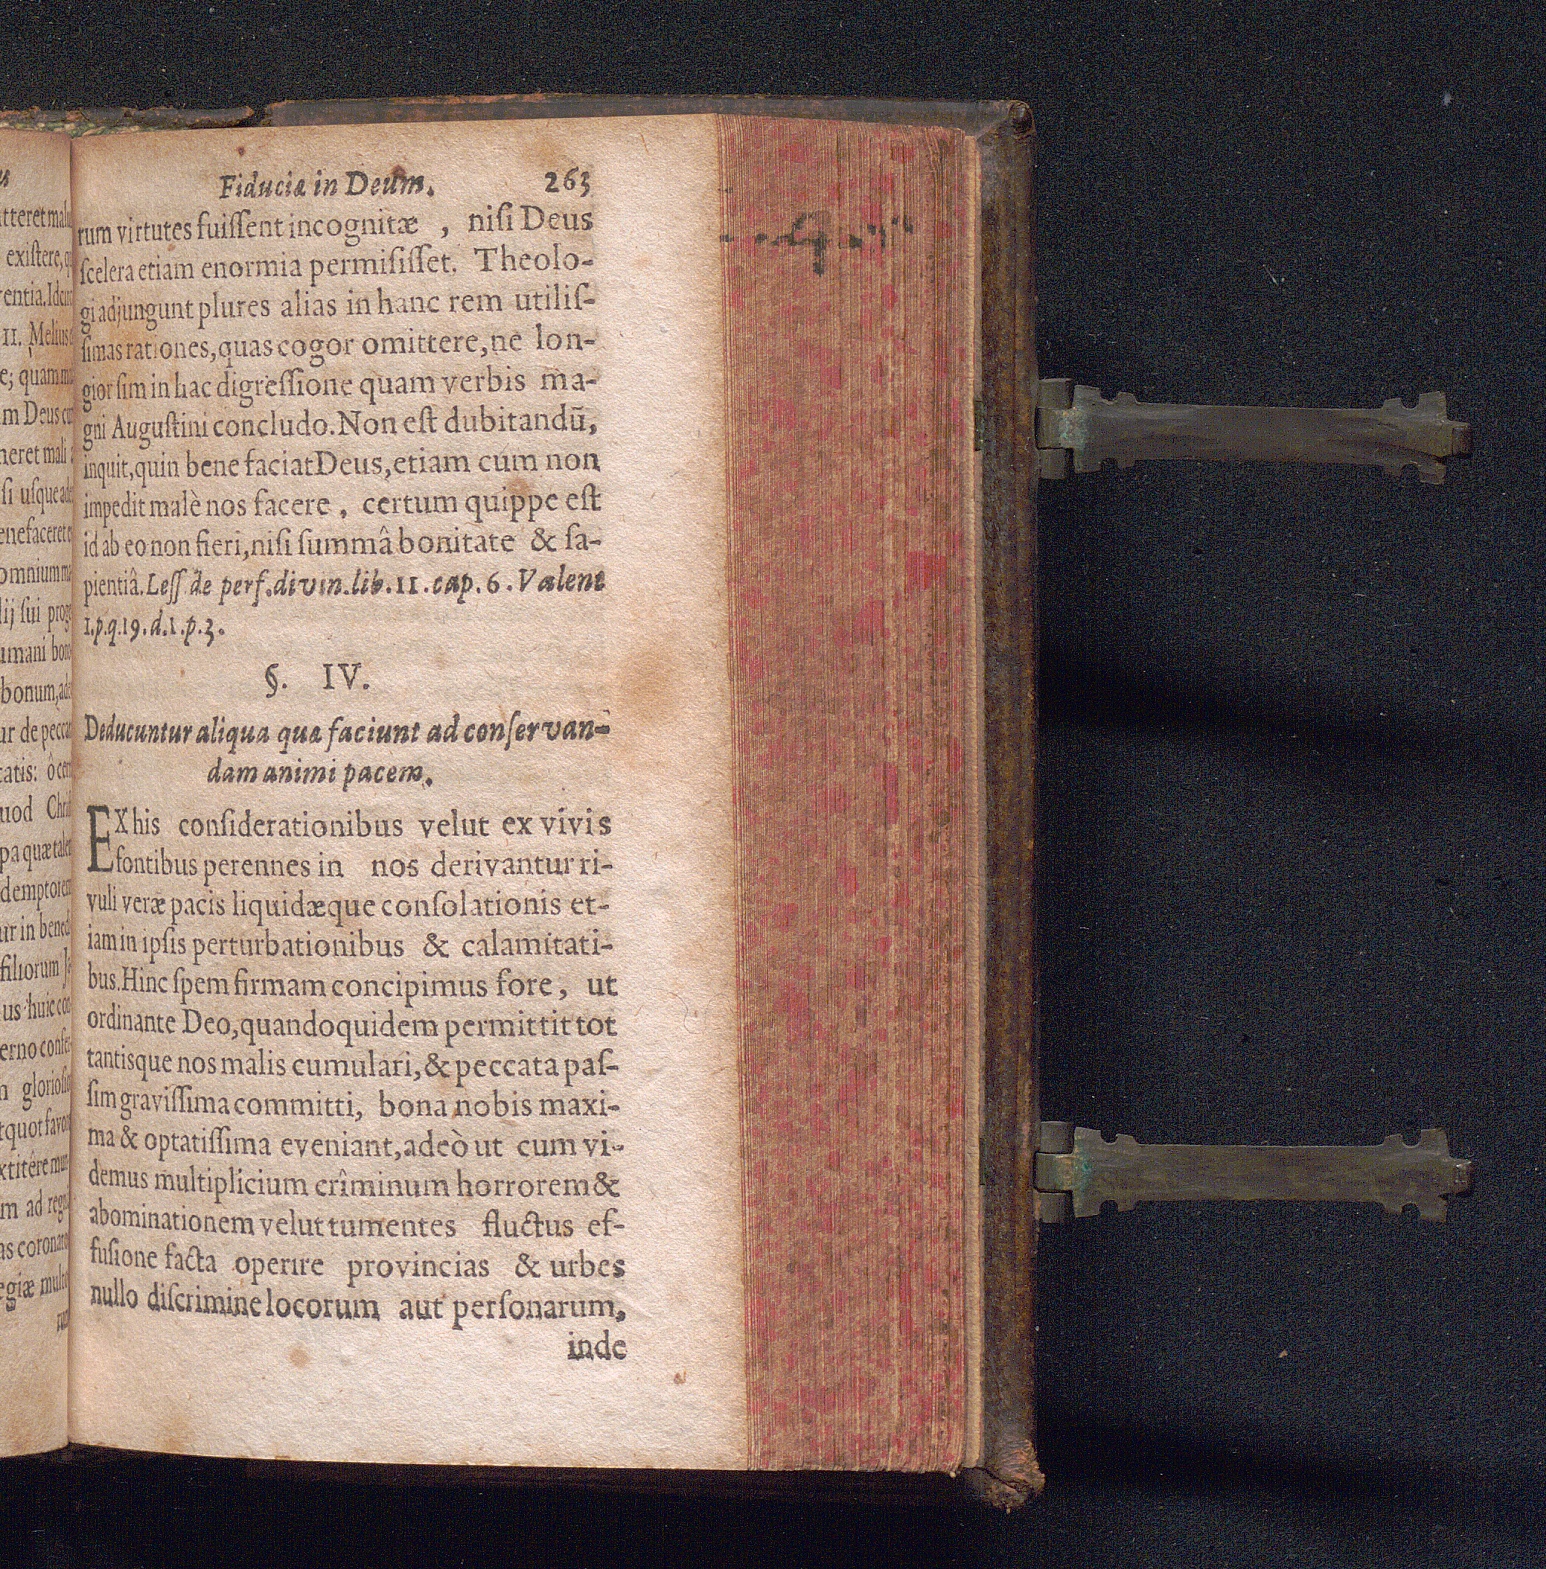 Fiduciæ in Deum. 263
rum virtutes fuiſſent incognitæ , niſi Deus
ſcelera etiam enormia permiſiſſet. Theolo-
gi adjungunt plures alias in hanc rem utiliſ-
ſimas rationes, quas cogor omittere, ne lon-
gior ſim in hac digreſſione quam verbis ma-
gni Auguſtini concludo. Non eſt dubitandū,
inquit, quin bene faciat Deus, etiam cúm non
impedit malè nos facere , certum quippe eſt
id ab eo non fieri, niſi ſummâ bonitate & ſa-
pientiâ. Leſſ de perf. divin. lib. 11. cap. 6. Valent
1. p. q. 19. d. 1. p. 3.
§. IV.
Deducuntur aliqua quæ faciunt ad conſervan-
dam animi pacem.
EX his conſiderationibus velut ex vivis
fontibus perennes in nos derivantur ri-
vuli veræ pacis liquidæque conſolationis et-
iam in ipſis perturbationibus & calamitati-
bus. Hinc ſpem firmam concipimus fore, ut
ordinante Deo, quandoquidem permittit tot
tantisque nos malis cumulari, & peccata paſ-
ſim graviſſima committi, bona nobis maxi-
ma & optatiſſima eveniant, adeò ut cum vi-
demus multiplicium crîminum horrorem &
abominationem velut tumentes fluctus ef-
fuſione facta operire provincias & urbes
nullo diſcrimine locorum aut perſonarum,
inde